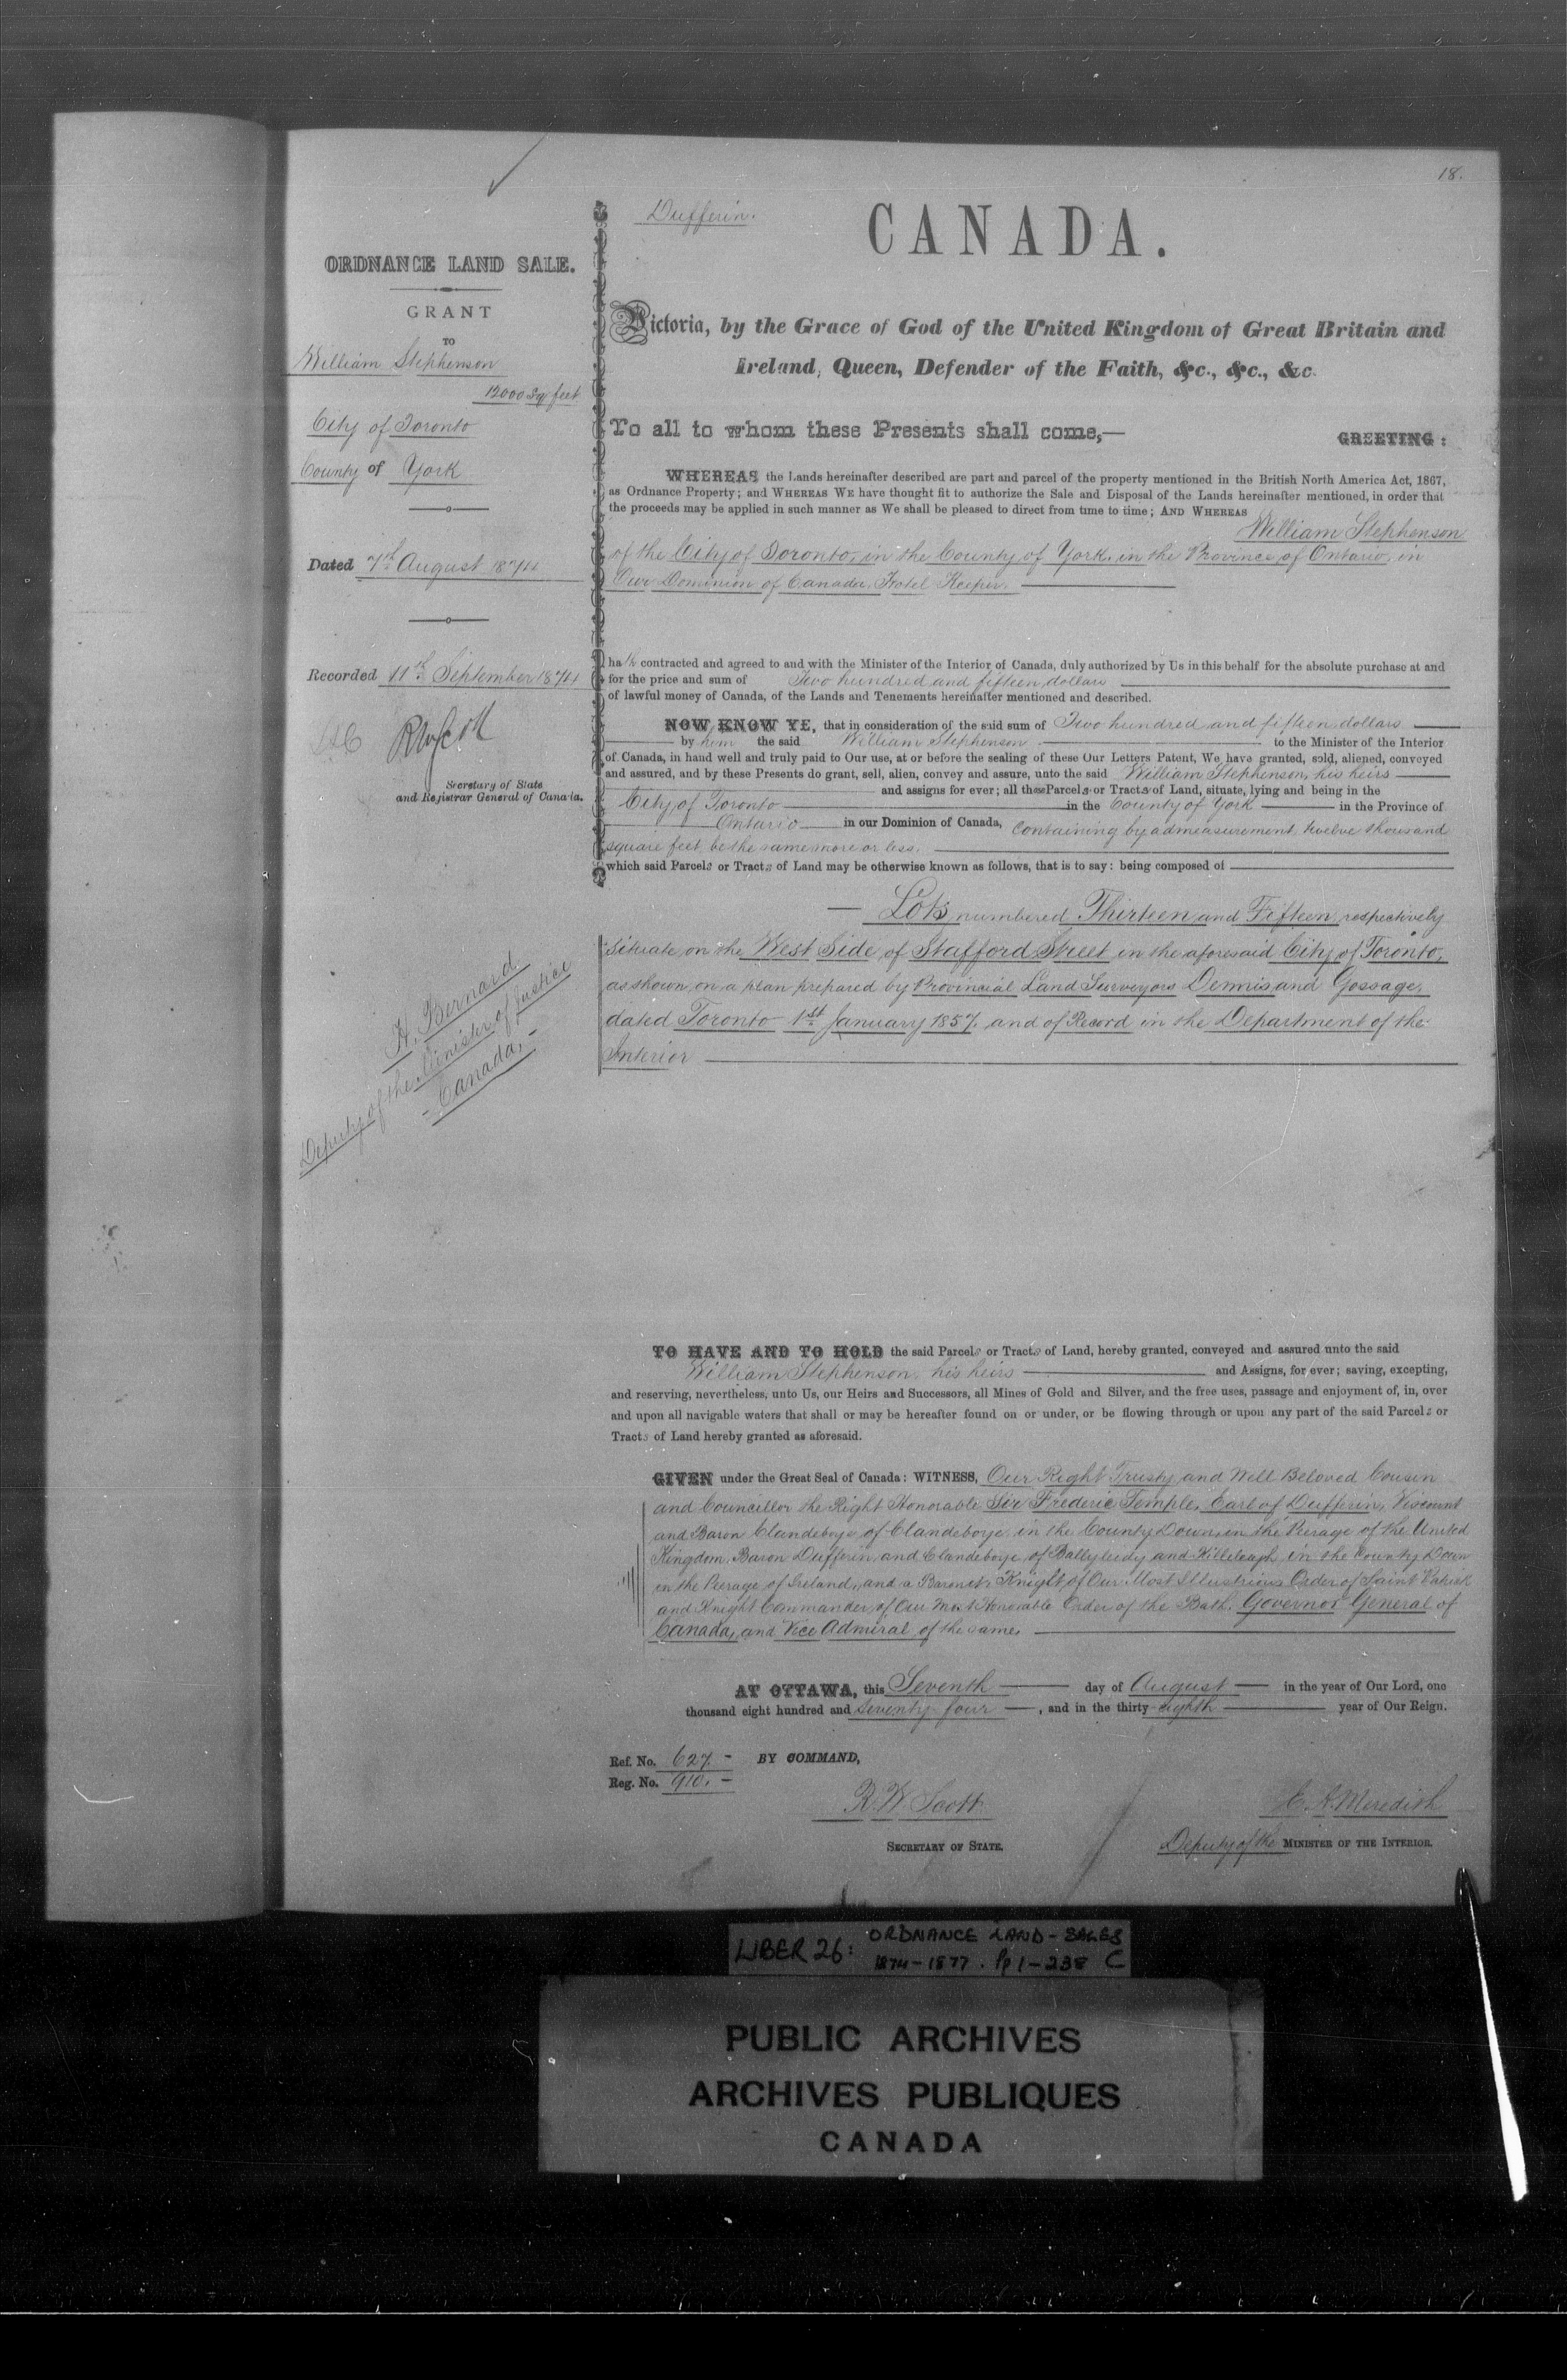 18.
Dufferin.
CANADA.
ORDNANCE LAND SALE.
GRANT
TO
William Stephenson
12000 Sq feet
City of Toronto
County of York
Dated 7th August 1874
Recorded 11th September 1874
RWScott
Secretary of State
and Registrar General of Canada.
H. Bernard
Deputy of the Minister of Justice
Canada,
Victoria, by the Grace of God of the United Kingdom of Great Britain and
Ireland, Queen, Defender of the Faith, &c., &c., &c.
To all to whom these Presents shall come,—
GREETING:
WHEREAS the Lands hereinafter described are part and parcel of the property mentioned in the British North America Act, 1867,
as Ordnance Property; and WHEREAS WE have thought fit to authorize the Sale and Disposal of the Lands hereinafter mentioned, in order that
the proceeds may be applied in such manner as We shall be pleased to direct from time to time; AND WHEREAS
William Stephenson
of the City of Toronto, in the County of York, in the Province of Ontario, in
Our Dominion of Canada, Hotel Keeper.
hath contracted and agreed to and with the Minister of the Interior of Canada, duly authorized by Us in this behalf for the absolute purchase at and
for the price and sum of Two hundred and fifteen dollars
of lawful money of Canada, of the Lands and Tenements hereinafter mentioned and described.
NOW KNOW YE, that in consideration of the said sum of Two hundred and fifteen dollars
by him the said William Stephenson to the Minister of the Interior
of Canada, in hand well and truly paid to Our use, at or before the sealing of these Our Letters Patent, We have granted, sold, aliened, conveyed
and assured, and by these Presents do grant, sell, alien, convey and assure, unto the said William Stephenson, his heirs
and assigns for ever; all those Parcels or Tracts of Land, situate, lying and being in the
City of Toronto in the County of York in the Province of
Ontario in our Dominion of Canada, containing by admeasurement, twelve thousand
square feet, be the same more or less,
which said Parcels or Tracts of Land may be otherwise known as follows, that is to say: being composed of
Lots numbered Thirteen and Fifteen respectively
Situate on the West Side of Stafford Street in the aforesaid City of Toronto,
as shown on a plan prepared by Provincial Land Surveyors Dennis and Gossage,
dated Toronto 1st January 1857, and of Record in the Department of the
Interior
TO HAVE AND TO HOLD the said Parcels or Tracts of Land, hereby granted, conveyed and assured unto the said
William Stephenson, his heirs and Assigns, for ever; saving, excepting,
and reserving, nevertheless, unto Us, our Heirs and Successors, all Mines of Gold and Silver, and the free uses, passage and enjoyment of, in, over
and upon all navigable waters that shall or may be hereafter found on or under, or be flowing through or upon any part of the said Parcels or
Tracts of Land hereby granted as aforesaid.
GIVEN under the Great Seal of Canada: WITNESS, Our Right Trusty and Well Beloved Cousin
and Councillor the Right Honorable Sir Frederic Temple, Earl of Dufferin, Viscount
and Baron Clandeboye, of Clandeboye, in the County Down, in the Peerage of the United
Kingdom, Baron Dufferin and Clandeboye, of Ballyleidy and Killeleagh, in the County Down
in the Peerage of Ireland, and a Baronet, Knight of Our Most Illustrious Order of Saint Patrick
and Knight Commander of Our Most Honorable Order of the Bath. Governor General of
Canada, and Vice Admiral of the same.
AT OTTAWA, this Seventh day of August in the year of Our Lord, one
thousand eight hundred and Seventy four, and in the thirty-eighth year of Our Reign.
Ref. No. 627. BY COMMAND,
Reg. No. 910.
R. W. Scott
SECRETARY OF STATE.
E. A. Meredith
Deputy of the MINISTER OF THE INTERIOR.
LIBER 26: ORDNANCE LAND-SALES
1874-1877. Pp 1-238 C
PUBLIC ARCHIVES
ARCHIVES PUBLIQUES
CANADA